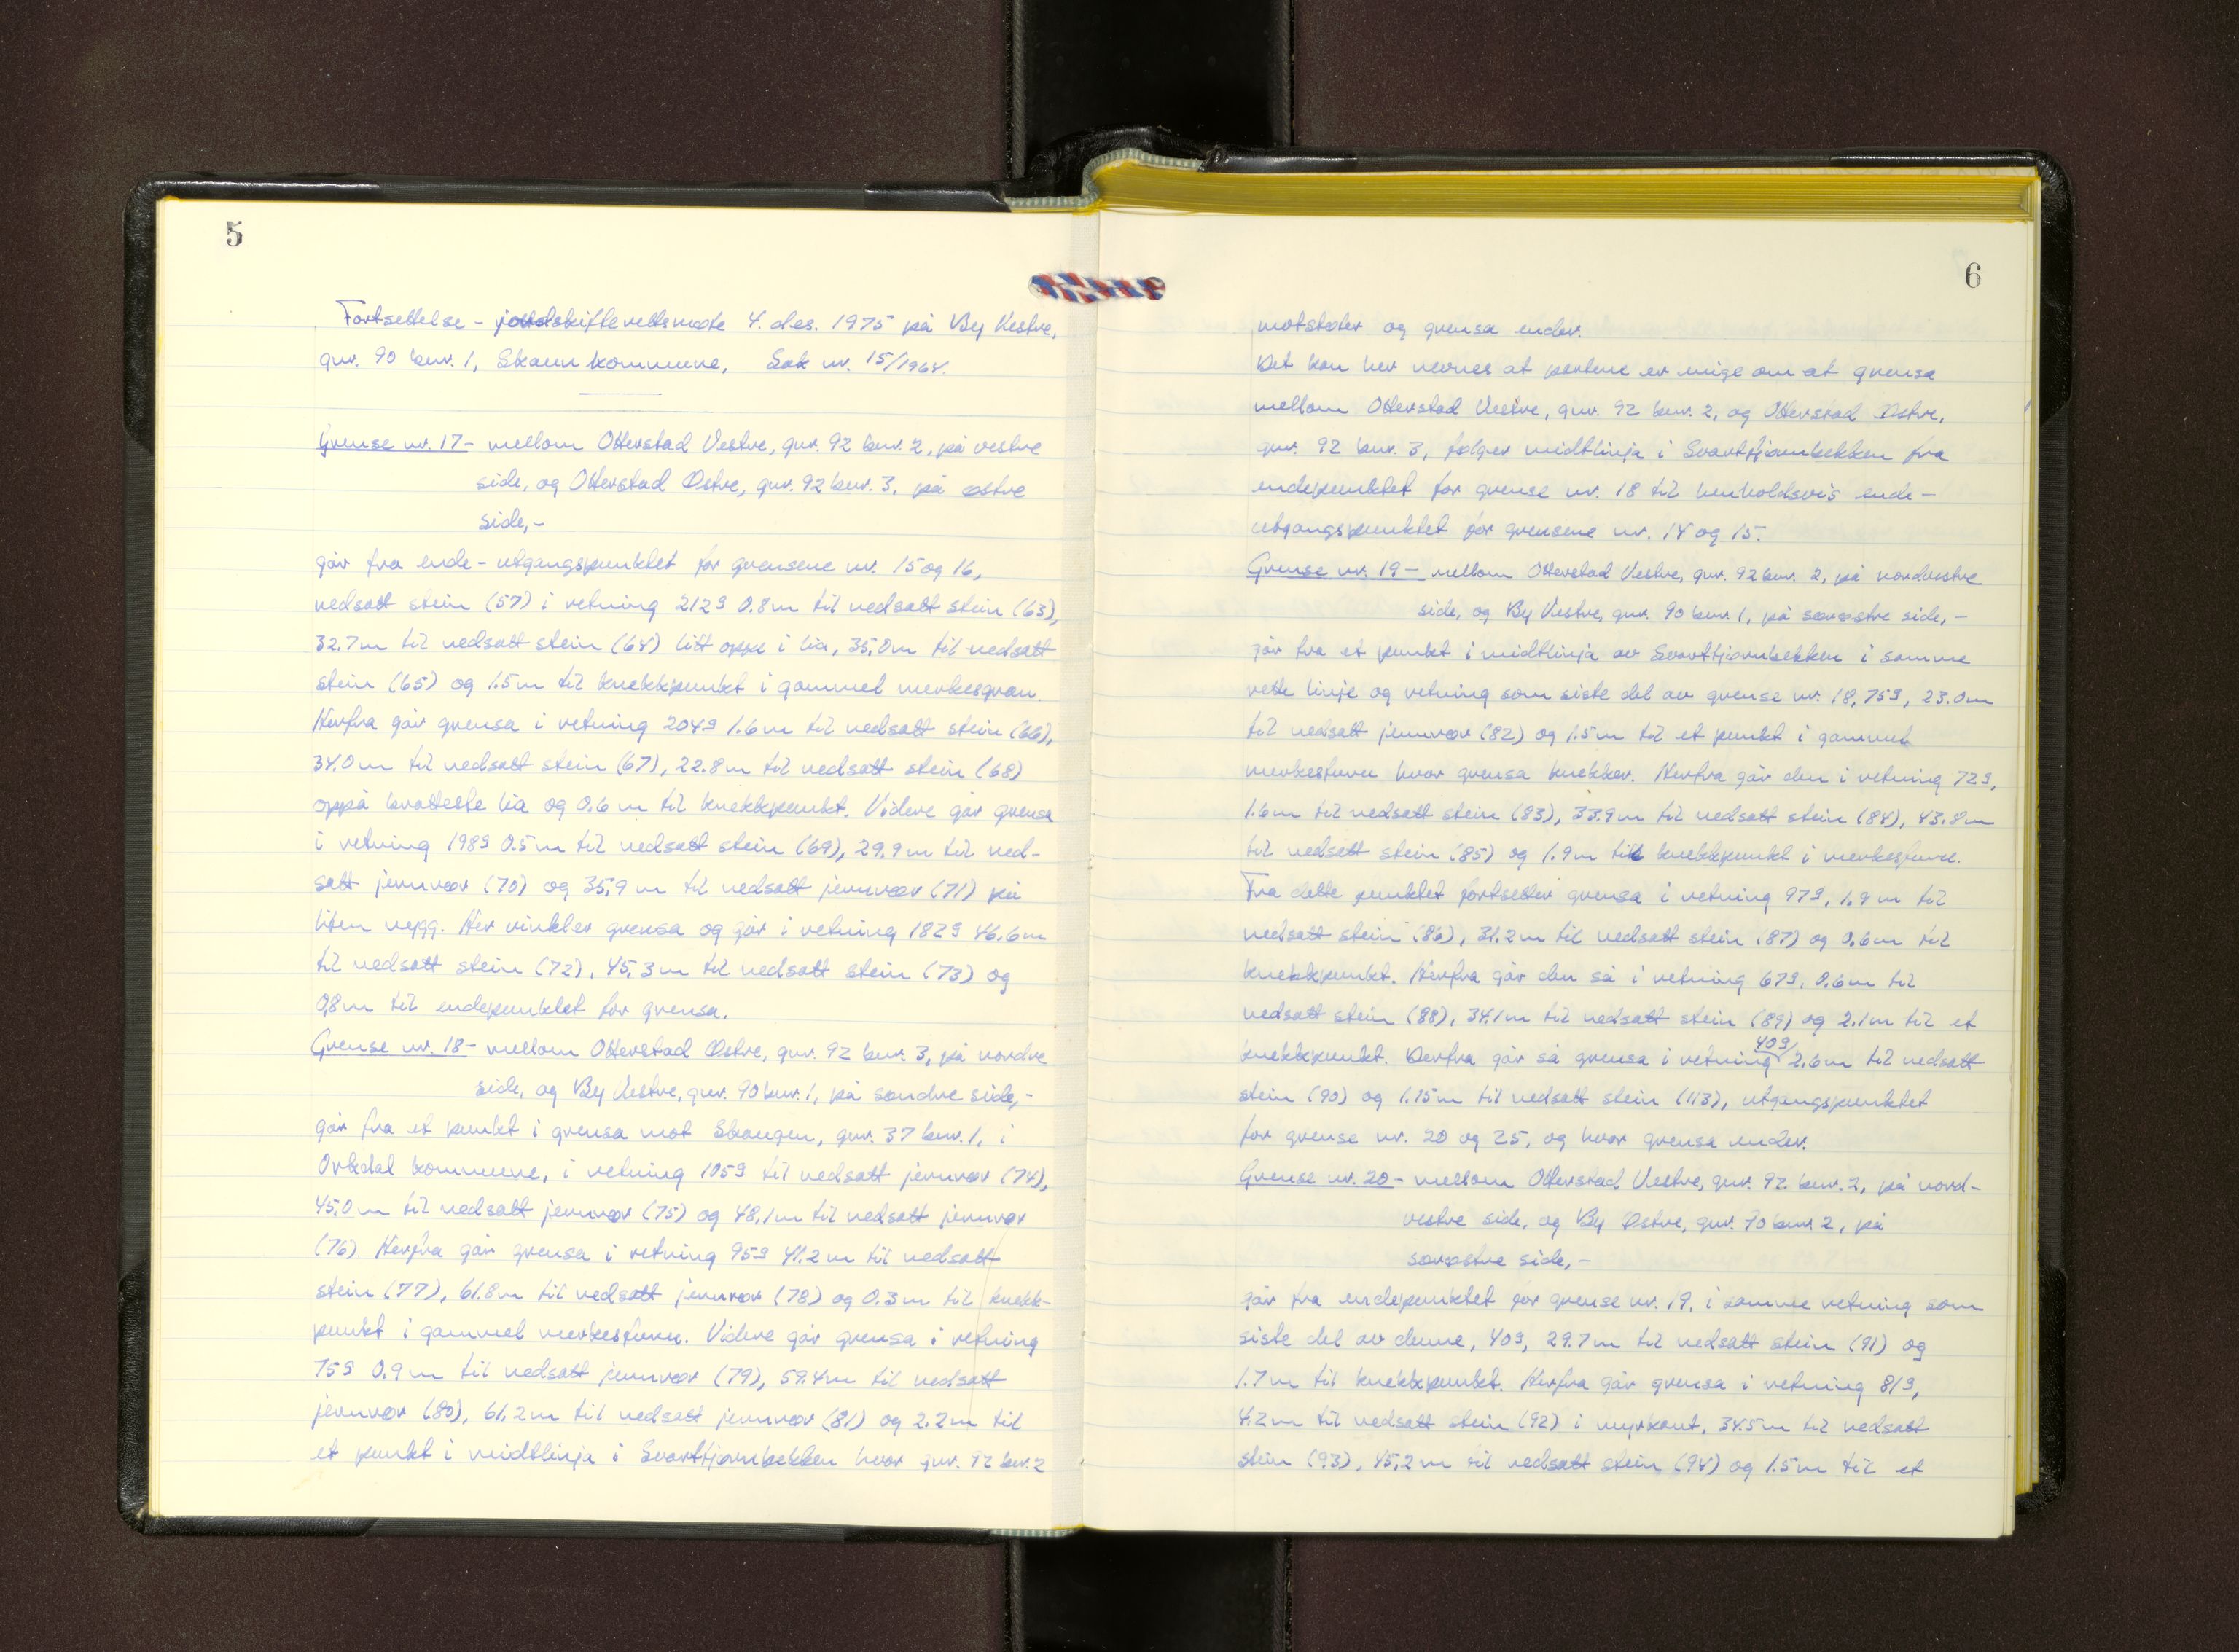 5
Fortsettelse - jordskifterettsmøte 4. des. 1975 på By Vestre,
gnr. 90 bnr. 1, Skaun kommune, Sak nr. 15/1964.
Grense nr. 17 - mellom Otterstad Vestre, gnr. 92 bnr. 2, på vestre
side, og Otterstad Østre, gnr. 92 bnr. 3, på østre
side,-
går fra ende - utgangspunktet for grensene nr. 15 og 16,
nedsatt stein (57) i retning 212g 0.8m til nedsatt stein (63),
32.7m til nedsatt stein (64) litt oppe i lia, 35,0m til nedsatt
stein (65) og 1.5m til knekkpunkt i gammel merkesgran.
Herfra går grensa i retning 204g 1.6m til nedsatt stein (66),
34.0m til nedsatt stein (67), 22.8m til nedsatt stein (68)
oppå bratteste lia og 0.6m til knekkpunkt. Videre går grensa
i retning 198g 0.5m til nedsatt stein (69), 29.9m til ned-
satt jernrør (70) og 35,9m til nedsatt jernrør (71) på
liten rygg. Her vinkler grensa og går i retning 182g 46.6m
til nedsatt stein (72), 45,3m til nedsatt stein (73) og
0,8m til endepunktet for grensa.
Grense nr. 18 - mellom Otterstad Østre, gnr. 92 bnr. 3, på nordre
side, og By Vestre, gnr. 90 bnr. 1, på søndre side,-
går fra et punkt i grensa mot Skaugen, gnr. 37 bnr. 1, i
Orkdal kommune, i retning 105g til nedsatt jernrør (74),
45,0m til nedsatt jernrør (75) og 48,1m til nedsatt jernrør
(76) Herfra går grensa i retning 95g 41.2m til nedsatt
stein (77), 61.8m til nedsatt jernrør (78) og 0.3m til knekk-
punkt i gammel merkesfuru. Videre går grensa i retning
75g 0.9m til nedsatt jernrør (79), 59.4m til nedsatt
jernrør (80), 61.2m til nedsatt jernrør (81) og 2.2m til
et punkt i midtlinja i Svarttjørnbekken hvor gnr. 92 bnr. 2
6
motstøter og grensa ender.
Det kan her nevnes at partene er enige om at grensa
mellom Otterstad Vestre, gnr. 92 bnr. 2, og Otterstad Østre,
gnr. 92 bnr. 3, følger midtlinja i Svarttjørnbekken fra
endepunktet for grense nr. 18 til henholdsvis ende -
utgangspunktet for grensene nr. 14 og 15.
Grense nr. 19 - mellom Otterstad Vestre, gnr. 92 bnr. 2, på nordvestre
side, og By Vestre, gnr. 90 bnr. 1, på sørøstre side,-
går fra et punkt i midtlinja av Svarttjørnbekken i samme
rette linje og retning som siste del av grense nr. 18, 75g, 23.0m
til nedsatt jernrør (82) og 1.5m til et punkt i gammel
merkesfuru hvor grensa knekker. Herfra går den i retning 72g,
1.6m til nedsatt stein (83), 33.9m til nedsatt stein (84), 43.8m
til nedsatt stein (85) og 1.9m till knekkpunkt i merkesfuru.
Fra dette punktet fortsetter grensa i retning 97g, 1.9m til
nedsatt stein (86), 31.2m til nedsatt stein (87) og 0.6m til
knekkpunkt. Herfra går den så i retning 67g, 0.6m til
nedsatt stein (88), 34.1m til nedsatt stein (89) og 2.1m til et
knekkpunkt. Derfra går så grensa i retning 40g 2.6m til nedsatt
stein (90) og 1.15m til nedsatt stein (113), utgangspunktet
for grense nr. 20 og 25, og hvor grensa ender.
Grense nr. 20 - mellom Otterstad Vestre, gnr. 92 bnr. 2, på nord-
vestre side, og By Østre, gnr. 90 bnr. 2, på
sørøstre side,-
går fra endepunktet for grense nr. 19, i samme retning som
siste del av denne, 40g, 29.7m til nedsatt stein (91) og
1.7m til knekkpunkt. Herfra går grensa i retning 81g,
4.2m til nedsatt stein (92) i myrkant, 34.5m til nedsatt
stein (93), 45,2m til nedsatt stein (94) og 1.5m til et